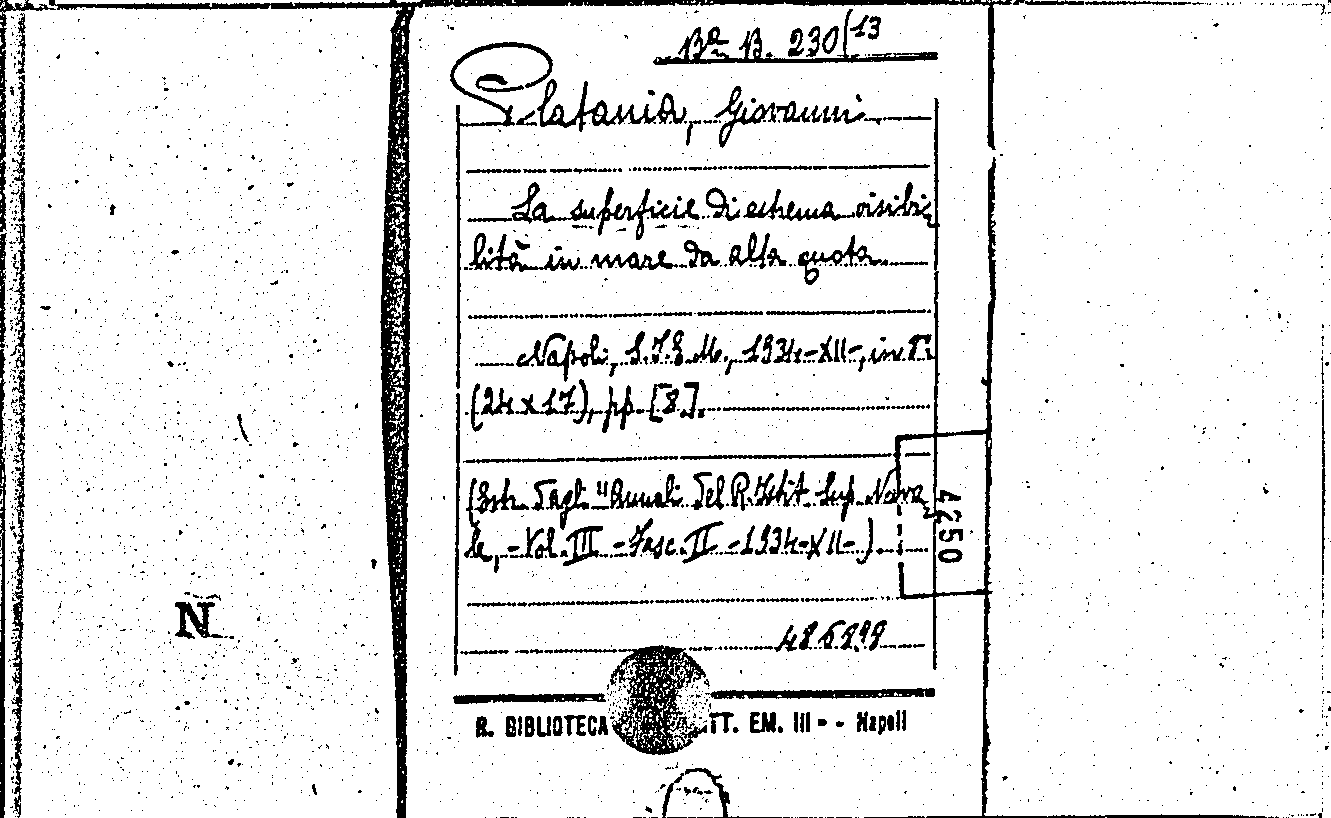 Bª B. 230(13
Platania, Giovanni.
La superficie di estrema visibi=
lità in mare da alta quota.
Napoli, S.I.E.M., 1934-XII-, in 8º
(24 x 17), pp. [8].
(Estr. dagli "Annali del R. Istit. Sup. Nava=
le, - Vol. III - Fasc. II - 1934-XII-).
4250
N
R. BIBLIOTECA TT. EM. III - - Napoli